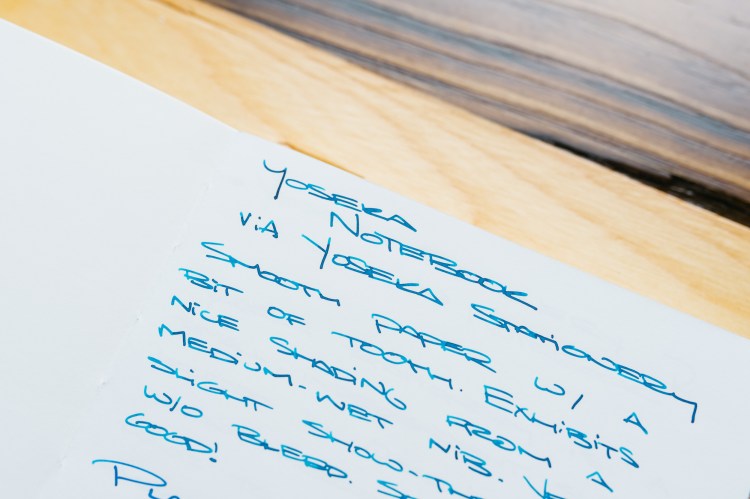 YOSEKA NOTEBOOK
VIA YOSEKA STATIONERY
SMOOTH PAPER W/ A
BIT OF TOOTH. EXHIBITS
NICE SHADING FROM A
MEDIUM-WET NIB.
SLIGHT SHOW-TH
W/O BLEED.
GOOD!